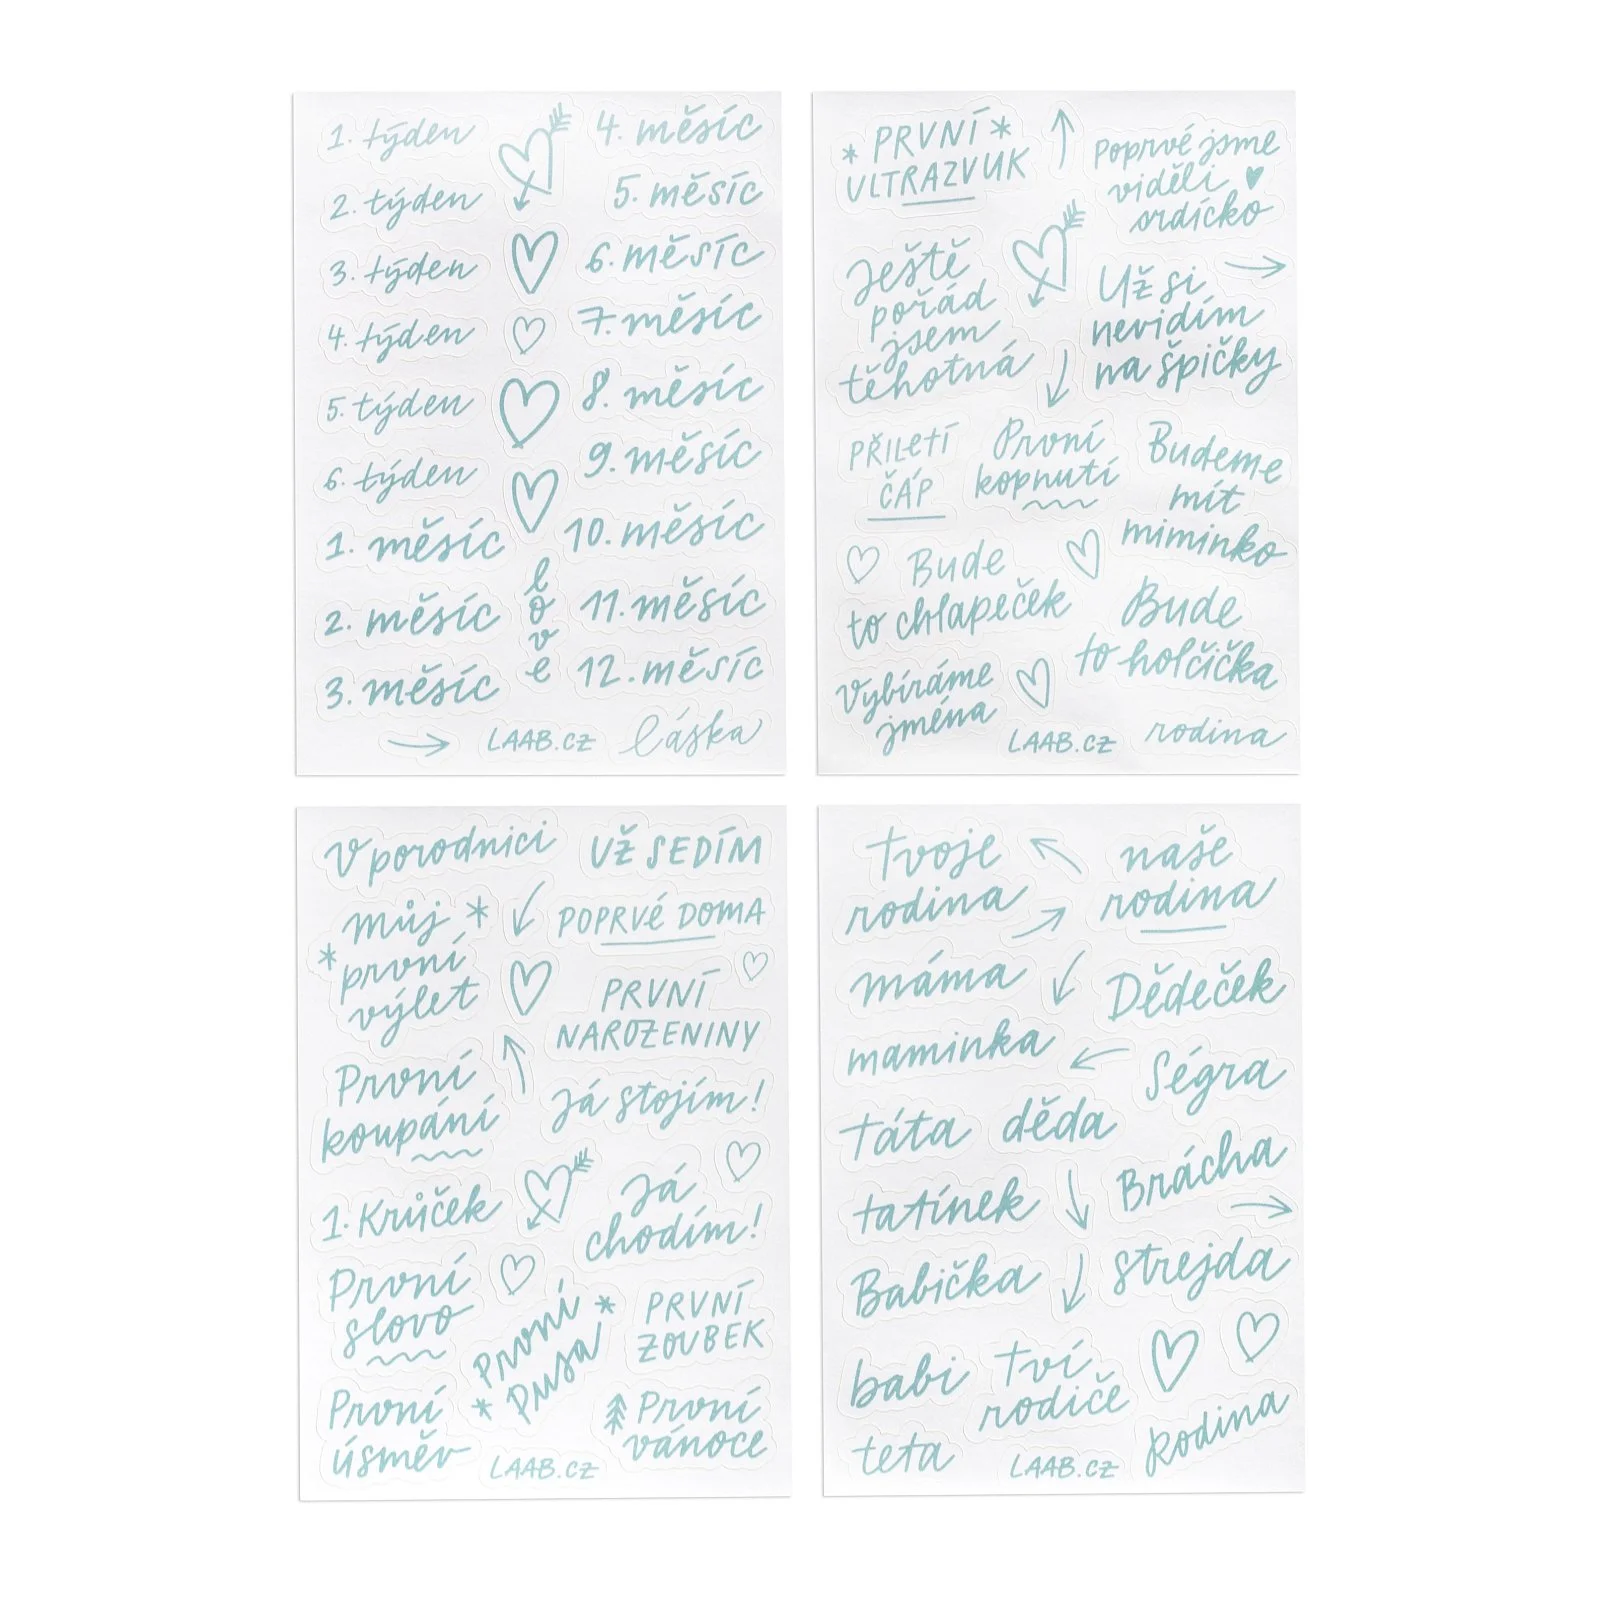 1. týden
2. týden
3. týden
4. týden
5. týden
6. týden
1. měsíc
2. měsíc
3. měsíc
love
4. měsíc
5. měsíc
6. měsíc
7. měsíc
8. měsíc
9. měsíc
10. měsíc
11. měsíc
12. měsíc
LAAB.CZ
láska
* PRVNÍ *
ULTRAZVUK
Poprvé jsme
viděli
srdíčko
Ještě
pořád
jsem
těhotná
Už si
nevidím
na špičky
PŘILETÍ
ČÁP
První
kopnutí
Budeme
mít
miminko
Bude
to chlapeček
Bude
to holčička
Vybíráme
jména
LAAB.CZ
rodina
V porodnici
můj *
* první
výlet
První
koupání
1. Krůček
První
slovo
První
úsměv
UŽ SEDÍM
POPRVÉ DOMA
PRVNÍ
NAROZENINY
Já stojím!
Já
chodím!
První *
* Pusa
PRVNÍ
ZOUBEK
První
vánoce
LAAB.CZ
tvoje
rodina
naše
rodina
máma
Dědeček
maminka
Ségra
táta
děda
Brácha
tatínek
Babička
strejda
babi
tví
rodiče
teta
LAAB.CZ
Rodina